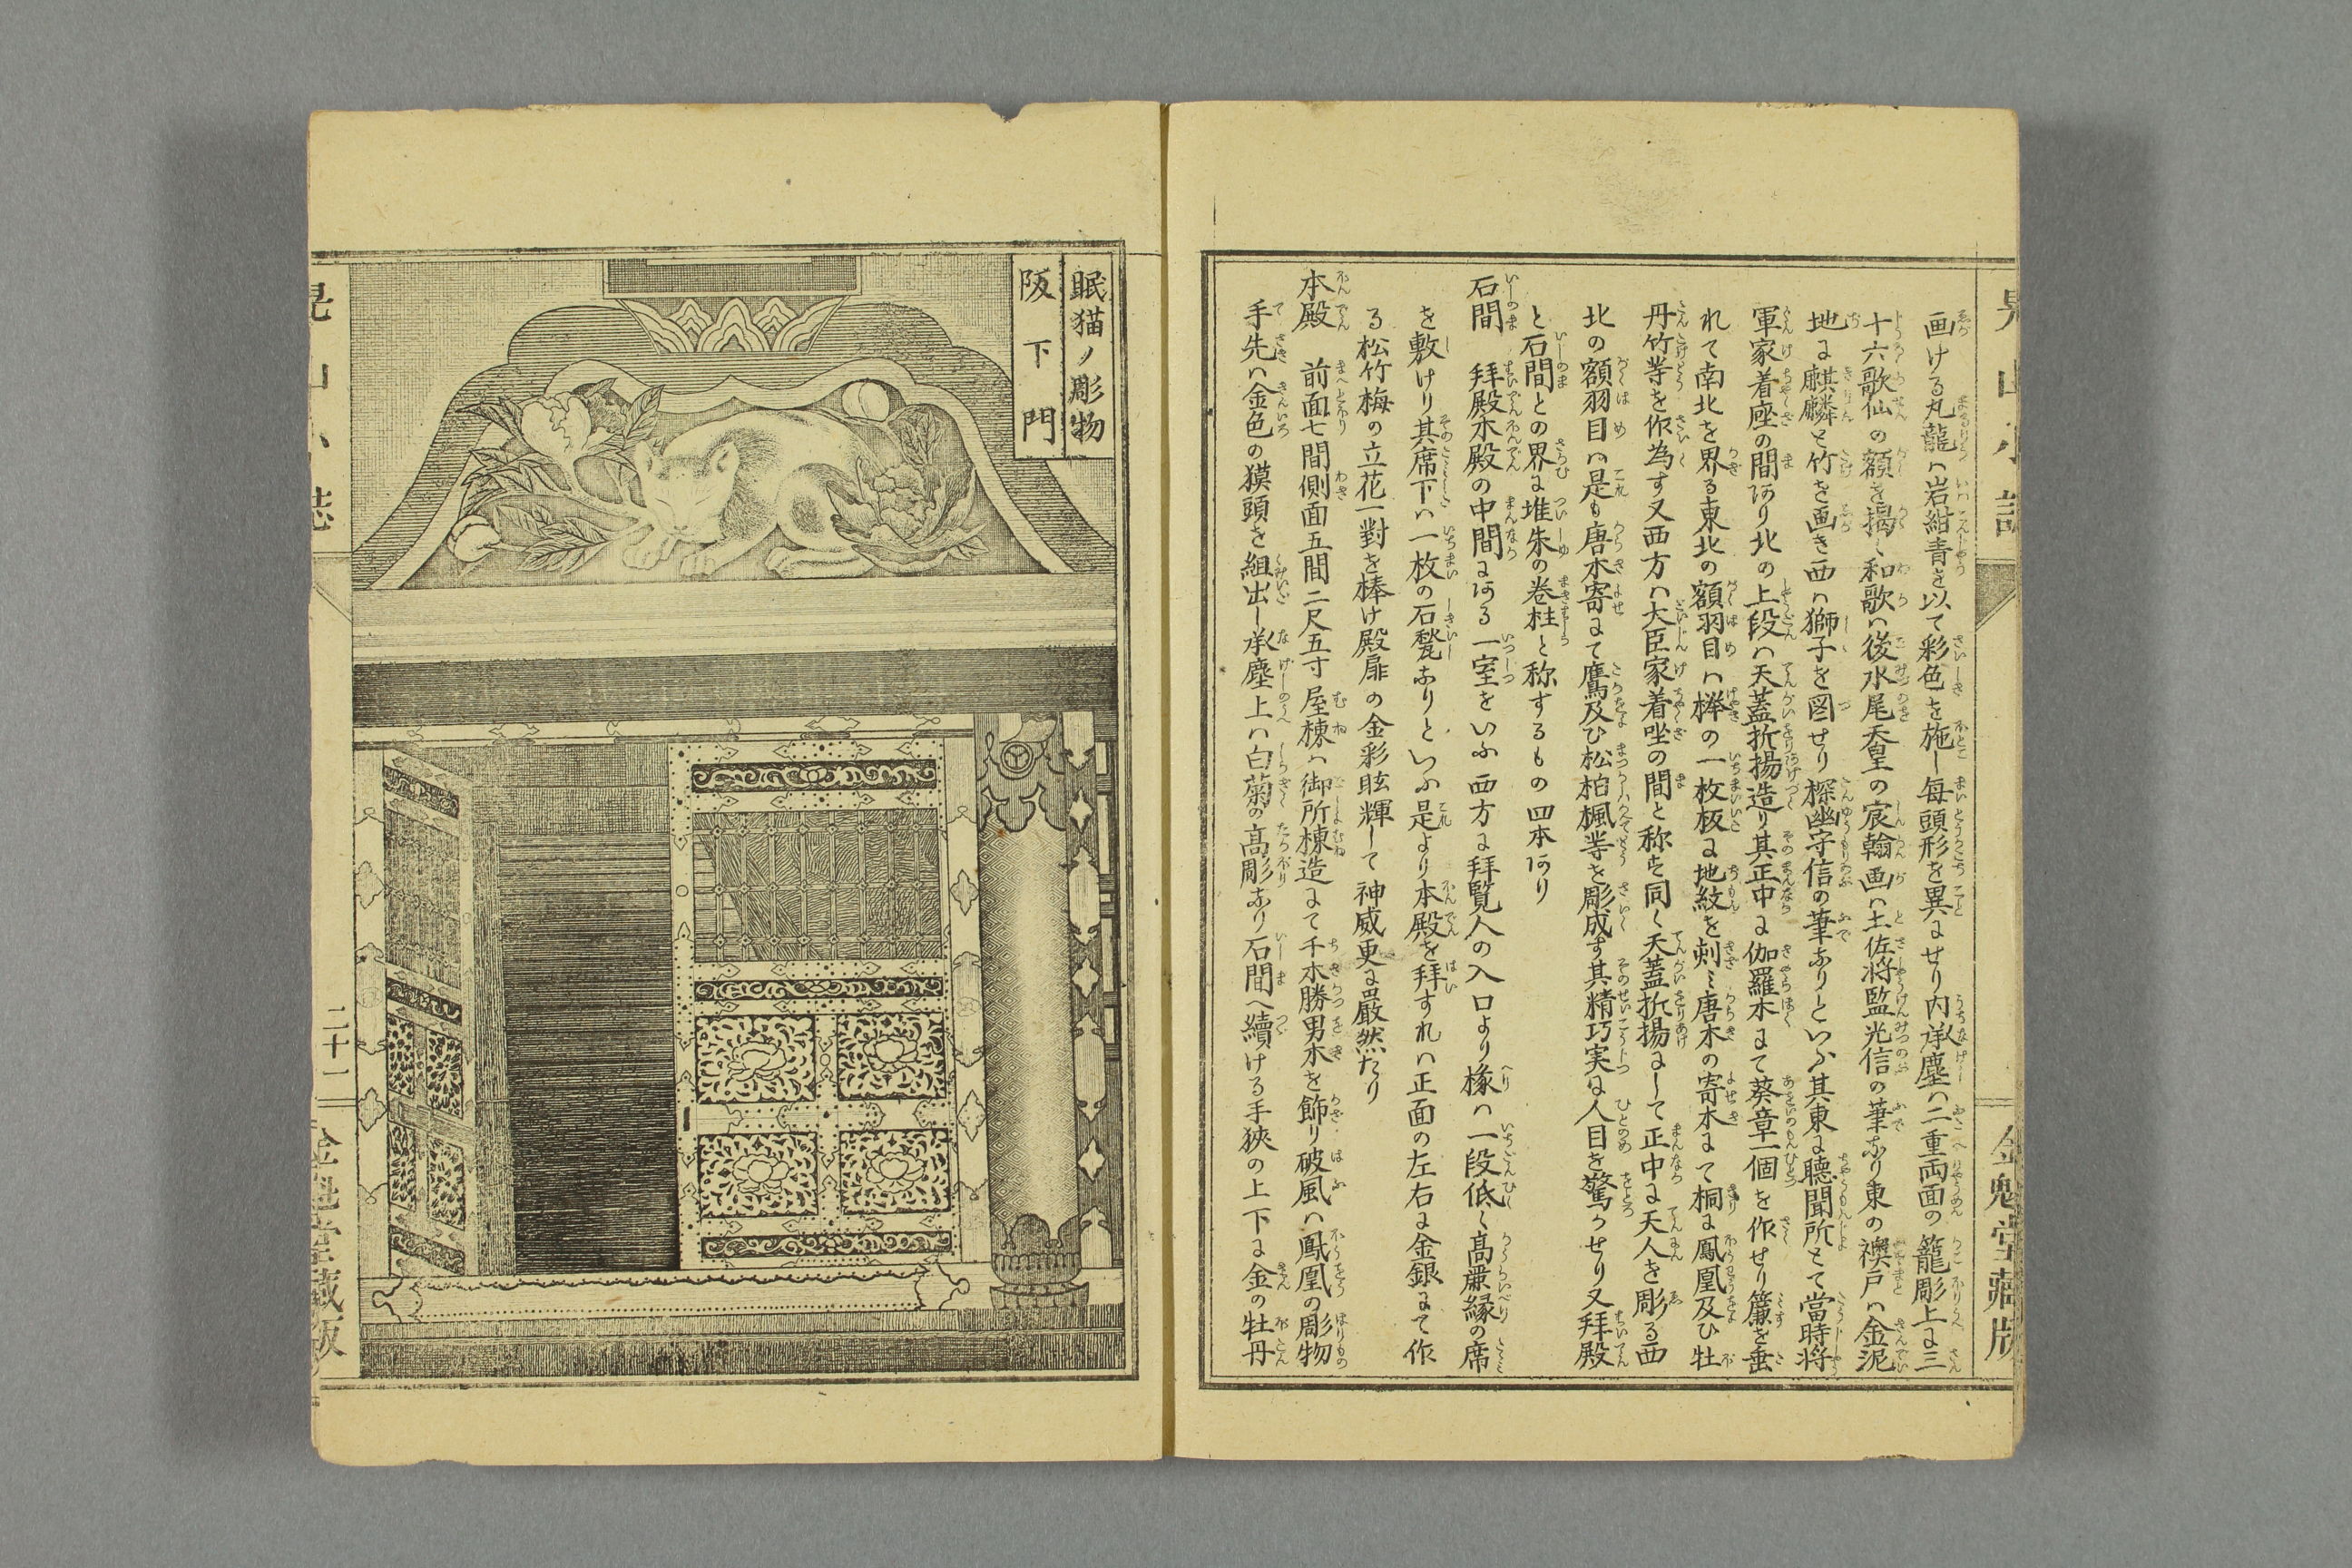 画ける丸龍ハ岩紺青を以て彩色を施し毎頭形を異にせり内承塵ハ二重両面の籠彫上に三
十六歌仙の額を掲く和歌ハ後水尾天皇の宸翰画ハ土佐将監光信の筆なり東の襖戸ハ金泥
地に麒麟と竹を画き西ハ獅子を図せり探幽守信の筆なりといふ其東に聴聞所とて當時将
軍家着座の間あり北の上段ハ天蓋折揚造り其正中に伽羅木にて葵章一個を作せり簾を垂
れて南北を界る東北の額羽目ハ欅の一枚板に地紋を刺ミ唐木の寄木にて桐に鳳凰及ひ牡
丹竹等を作為す又西方ハ大臣家着坐の間と称を同く天蓋折揚にして正中に天人を彫る西
北の額羽目ハ是も唐木寄せにて鷹及ひ松柏楓等を彫成す其精巧実に人目を驚かせり又拜殿
と石間との界に堆朱の巻柱と称するもの四本あり
石間　拜殿本殿の中間にある一室をいふ西方に拜覧人の入口より椽ハ一段低く高麗縁の席
を敷けり其席下ハ一枚の石甃なりといふ是より本殿を拜すれハ正面の左右に金銀にて作
る松竹梅の立花一對を棒け殿扉の金彩眩輝して神威更に嚴然たり
本殿　前面七間側面五間二尺五寸屋棟ハ御所棟造にて千木勝男木を飾り破風ハ鳳凰の彫物
手先ハ金色の獏頭を組出し承塵上ハ白菊の高彫なり石間へ續ける手狹の上下に金の牡丹
金魁堂藏版
眠猫ノ彫物
阪下門
二十一
金魁堂藏版